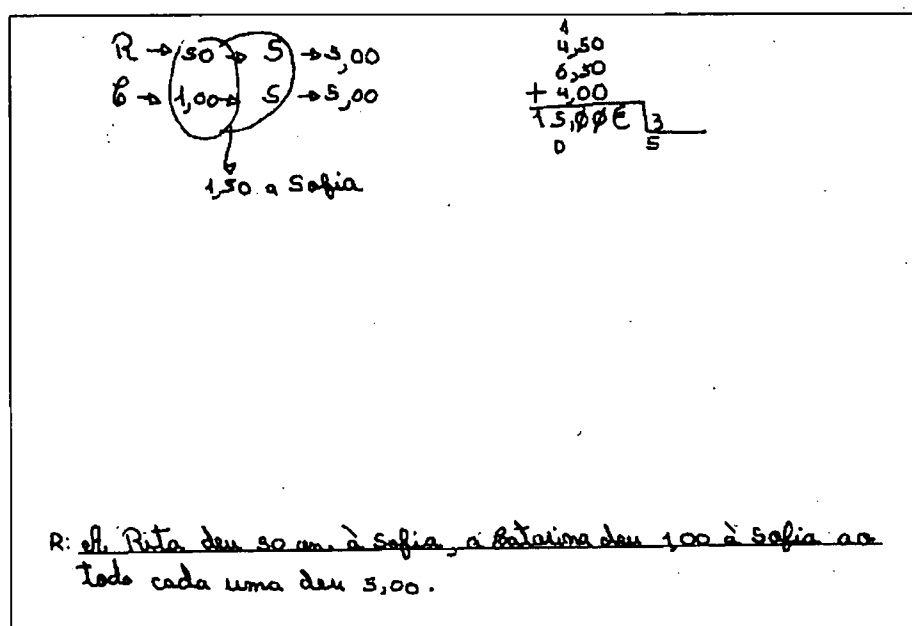 R → 50 → S → 5,00
C → 1,00 → S → 5,00
1,50 a Sofia
1
4,50
6,50
+ 4,00
15,00€ 3
0 5
R: A Rita deu 50 cm. à Sofia, a Catarina deu 1,00 à Sofia ao
todo cada uma deu 5,00.